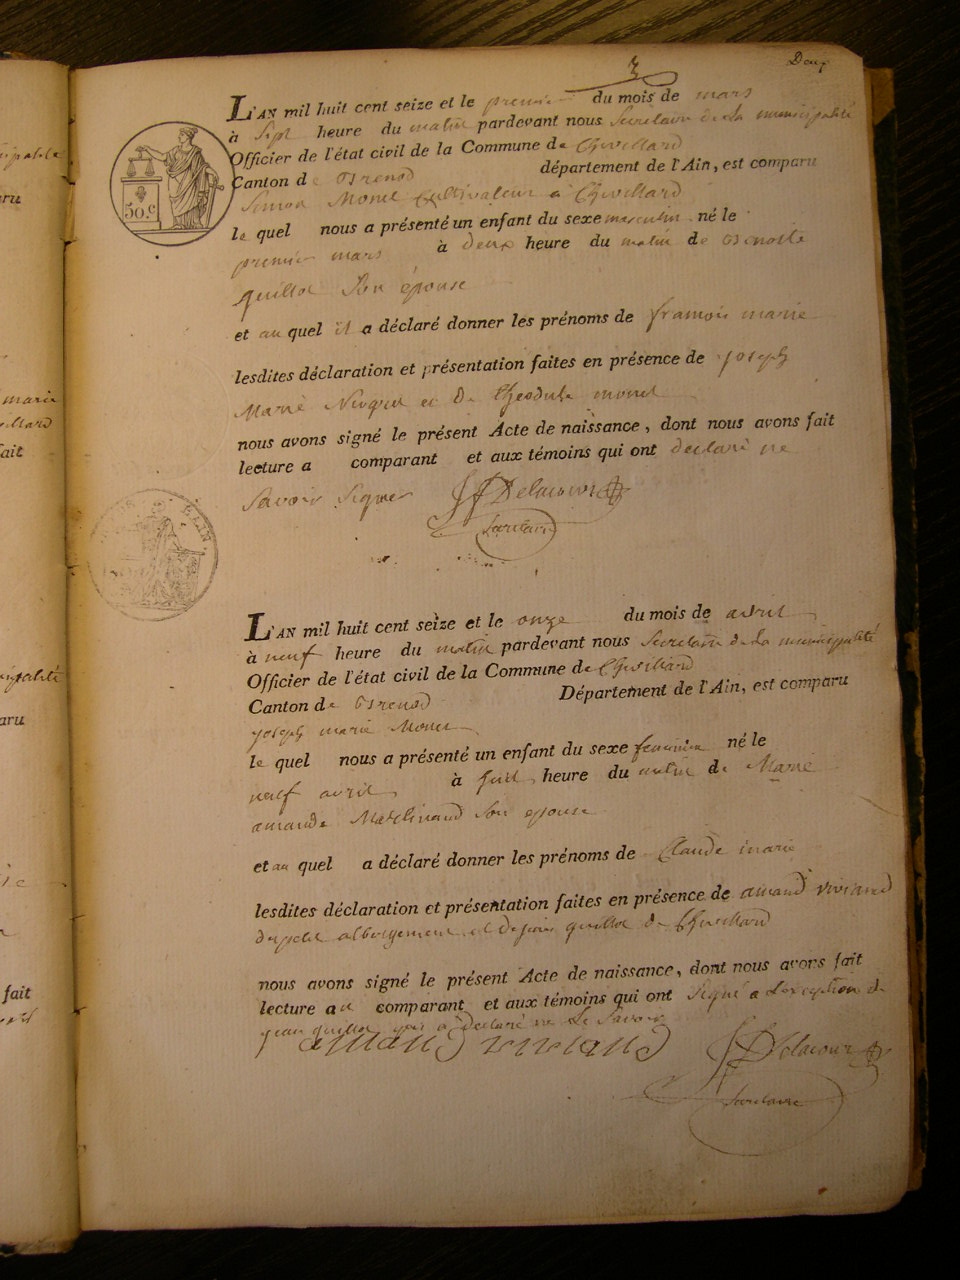 Deux
L'AN mil huit cent seize et le premier du mois de mars
à sept heure du matin pardevant nous Secretaire de La municipalité
Officier de l'état civil de la Commune de Chevillard
Canton de Brenod département de l'Ain, est comparu
Simon Monet Cultivateur à Chevillard
le quel nous a présenté un enfant du sexe masculin né le
premier mars à deux heure du matin de
guillot Son épouse
et au quel il a déclaré donner les prénoms de francois marie
lesdites déclaration et présentation faites en présence de joseph
Marie et de theodule monet
nous avons signé le présent Acte de naissance, dont nous avons fait
lecture a comparant et aux témoins qui ont declaré ne
Savoir Signer Delacour
Secretaire
50.c
AIN.
L'AN mil huit cent seize et le onze du mois de avril
à neuf heure du matin pardevant nous Secretaire de La municipalité
Officier de l'état civil de la Commune de Chevillard
Canton de Brenod Département de l'Ain, est comparu
joseph marie Monet
le quel nous a présenté un enfant du sexe feminin né le
neuf avril à huit heure du matin de Marie
amande Son epouse
et au quel a déclaré donner les prénoms de Claude marie
lesdites déclaration et présentation faites en présence de amand viviand
du petit albergement et de guillot de Chevillard
nous avons signé le présent Acte de naissance, dont nous avons fait
lecture au comparant et aux témoins qui ont Signé a Lexception de
jean guillot qui a declaré ne Le Savoir
amand viviand Delacour
Secretaire